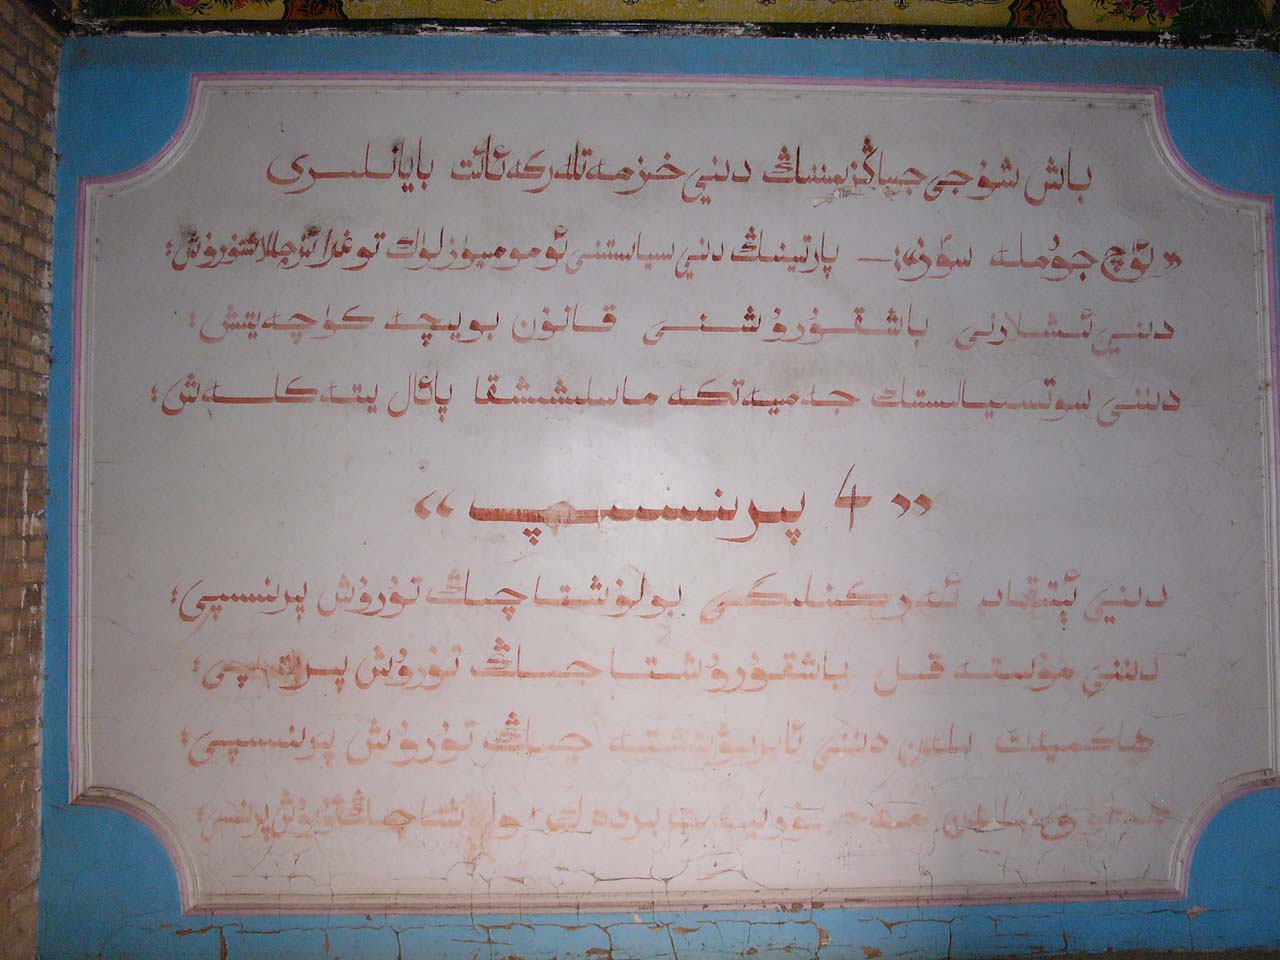 باش شۇجى جياڭزېمىننىڭ دىنىي خىزمەتلەر كە ئائىت بايانلىرى
«ئۈچ جۈملە سۆز»: — پارتىيىنىڭ دىنىي سىياسىتىنى ئومومىيۈزلۈك توغرا ئىزچىللاشتۇرۇش؛
دىنىي ئىشلارنى باشقۇرۇشنى قانۇن بويىچە كۈچەيتىش؛
دىننى سوتسىيالىستىك جەمىيەتكە ماسلىشىشقا پائال يىتەكلەش؛
« 4 پرىنسىپ »
دىنىي ئېتىقاد ئەركىنلىكى بولۇشتا چىڭ تۇرۇش پرىنسىپى؛
دىننى مۇستەقىل باشقۇرۇشتا چىڭ تۇرۇش پرىنسىپى؛
ھاكىمىيەت بىلەن دىننى ئايرىۋېتىشتە چىڭ تۇرۇش پرىنسىپى؛
چىڭ تۇرۇش پرىنسىپى؛